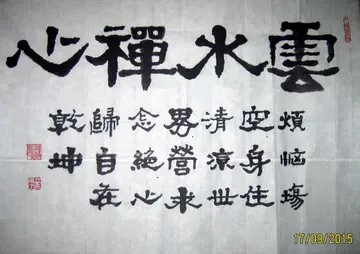 雲水禪心
煩惱場
空身住
清涼世
界營求
念絕心
歸自在
乾坤
17/09/2015